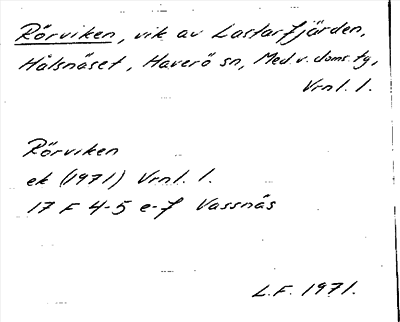 Rörviken, vik av Lastarfjärden,
Hålsnäset, Haverö sn, Med.v.doms.tg,
Vrnl. l.
Rörviken
ek (1971) Vrnl. l.
17 F 4-5 e-f Vassnäs
L.F. 1971.